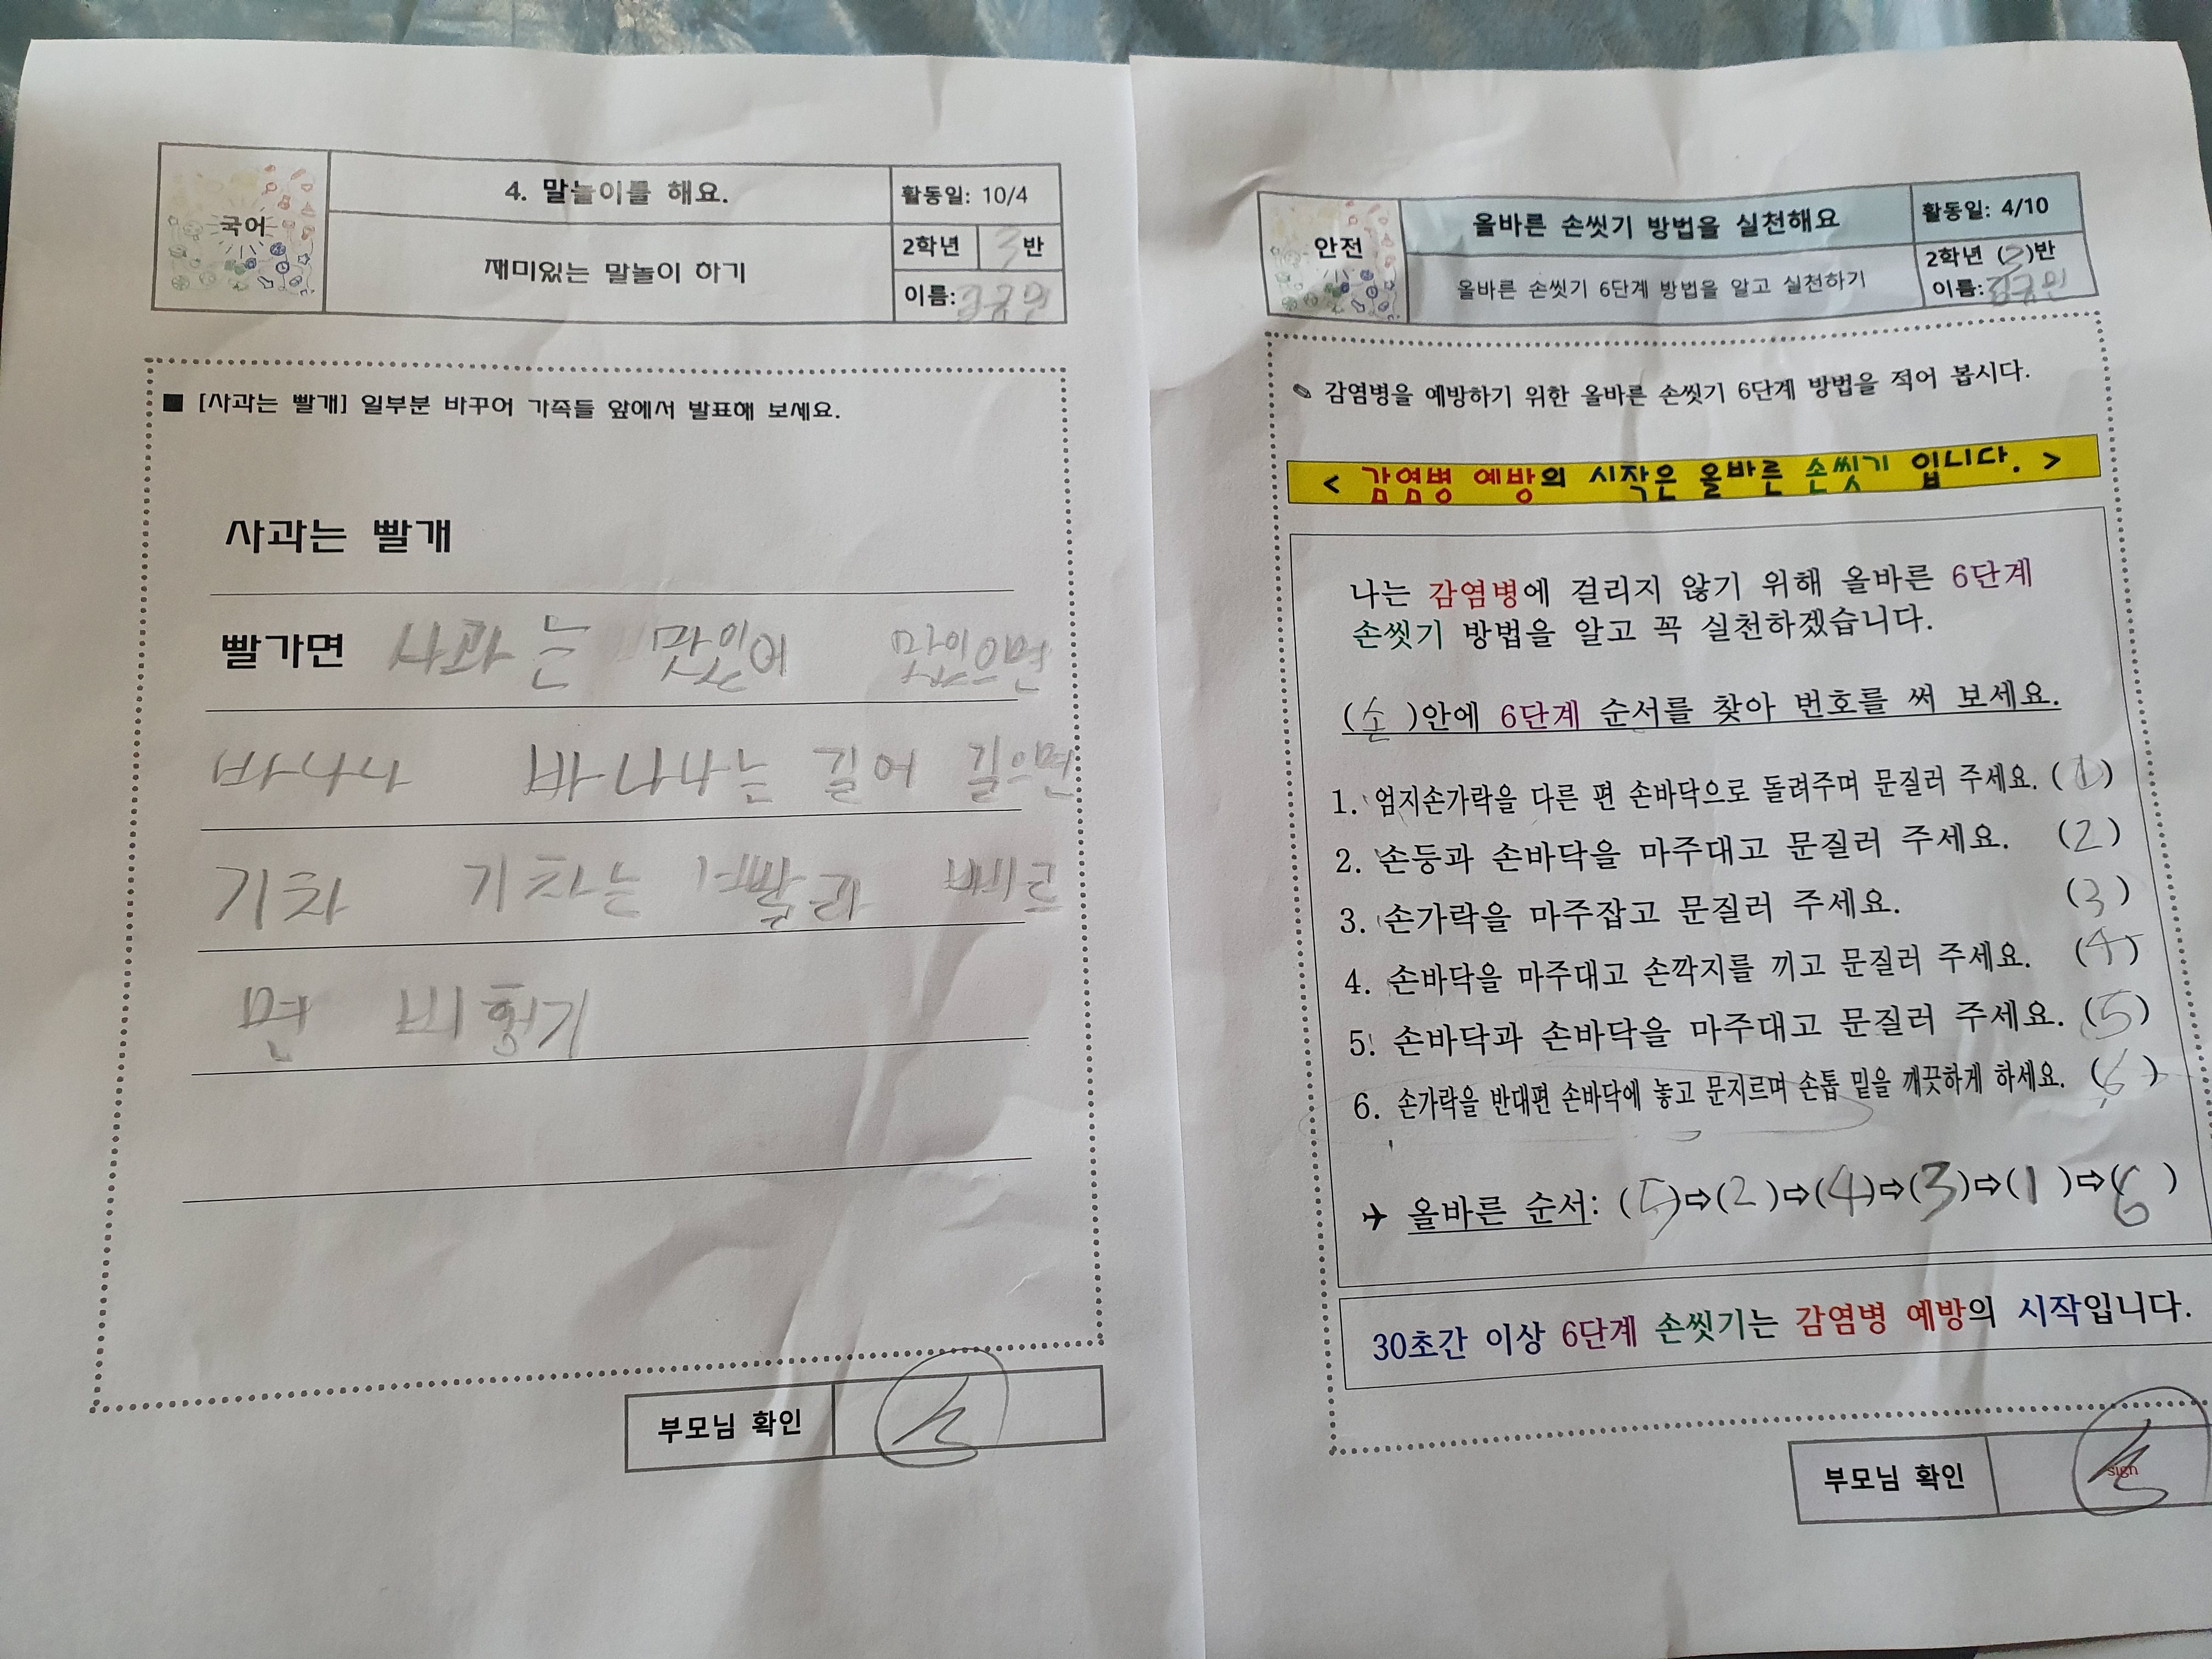 국어
4. 말놀이를 해요.
재미있는 말놀이 하기
활동일: 10/4
2학년 3반
이름:
■ [사과는 빨개] 일부분 바꾸어 가족들 앞에서 발표해 보세요.
사과는 빨개
빨가면 사과는 맛있어 맛있으면
바나나 바나나는 길어 길으면
기차 기차는 빨라 빠르
면 비행기
부모님 확인
안전
올바른 손씻기 방법을 실천해요
올바른 손씻기 6단계 방법을 알고 실천하기
활동일: 4/10
2학년 (3)반
이름:
✎ 감염병을 예방하기 위한 올바른 손씻기 6단계 방법을 적어 봅시다.
< 감염병 예방의 시작은 올바른 손씻기 입니다. >
나는 감염병에 걸리지 않기 위해 올바른 6단계
손씻기 방법을 알고 꼭 실천하겠습니다.
(손)안에 6단계 순서를 찾아 번호를 써 보세요.
1. 엄지손가락을 다른 편 손바닥으로 돌려주며 문질러 주세요. (1)
2. 손등과 손바닥을 마주대고 문질러 주세요. (2)
3. 손가락을 마주잡고 문질러 주세요. (3)
4. 손바닥을 마주대고 손깍지를 끼고 문질러 주세요. (4)
5. 손바닥과 손바닥을 마주대고 문질러 주세요. (5)
6. 손가락을 반대편 손바닥에 놓고 문지르며 손톱 밑을 깨끗하게 하세요. (6)
✈ 올바른 순서: (5)⇨(2)⇨(4)⇨(3)⇨(1)⇨(6)
30초간 이상 6단계 손씻기는 감염병 예방의 시작입니다.
부모님 확인
sign